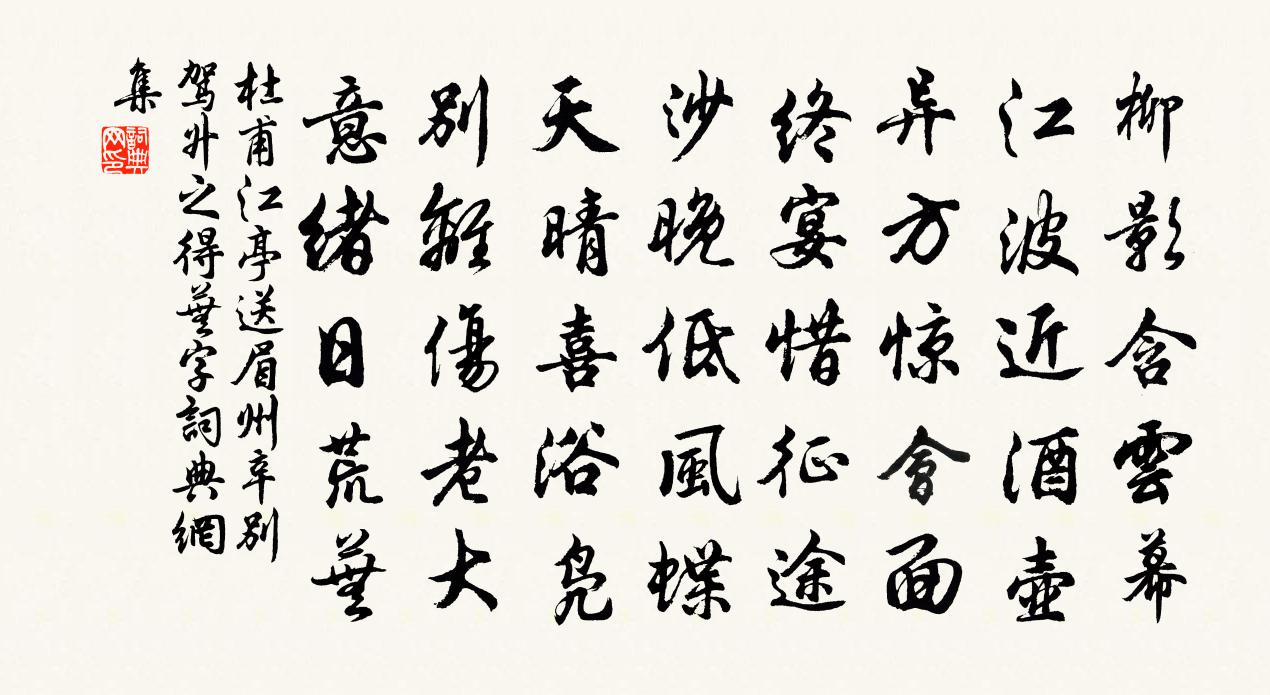 柳影含雲幕
江波近酒壺
异方惊會面
終宴惜征途
沙晚低風蝶
天晴喜浴鳧
别離傷老大
意緒日荒蕪
杜甫江亭送眉州辛别
駕升之得蕪字詞典網
集
詞典
网印